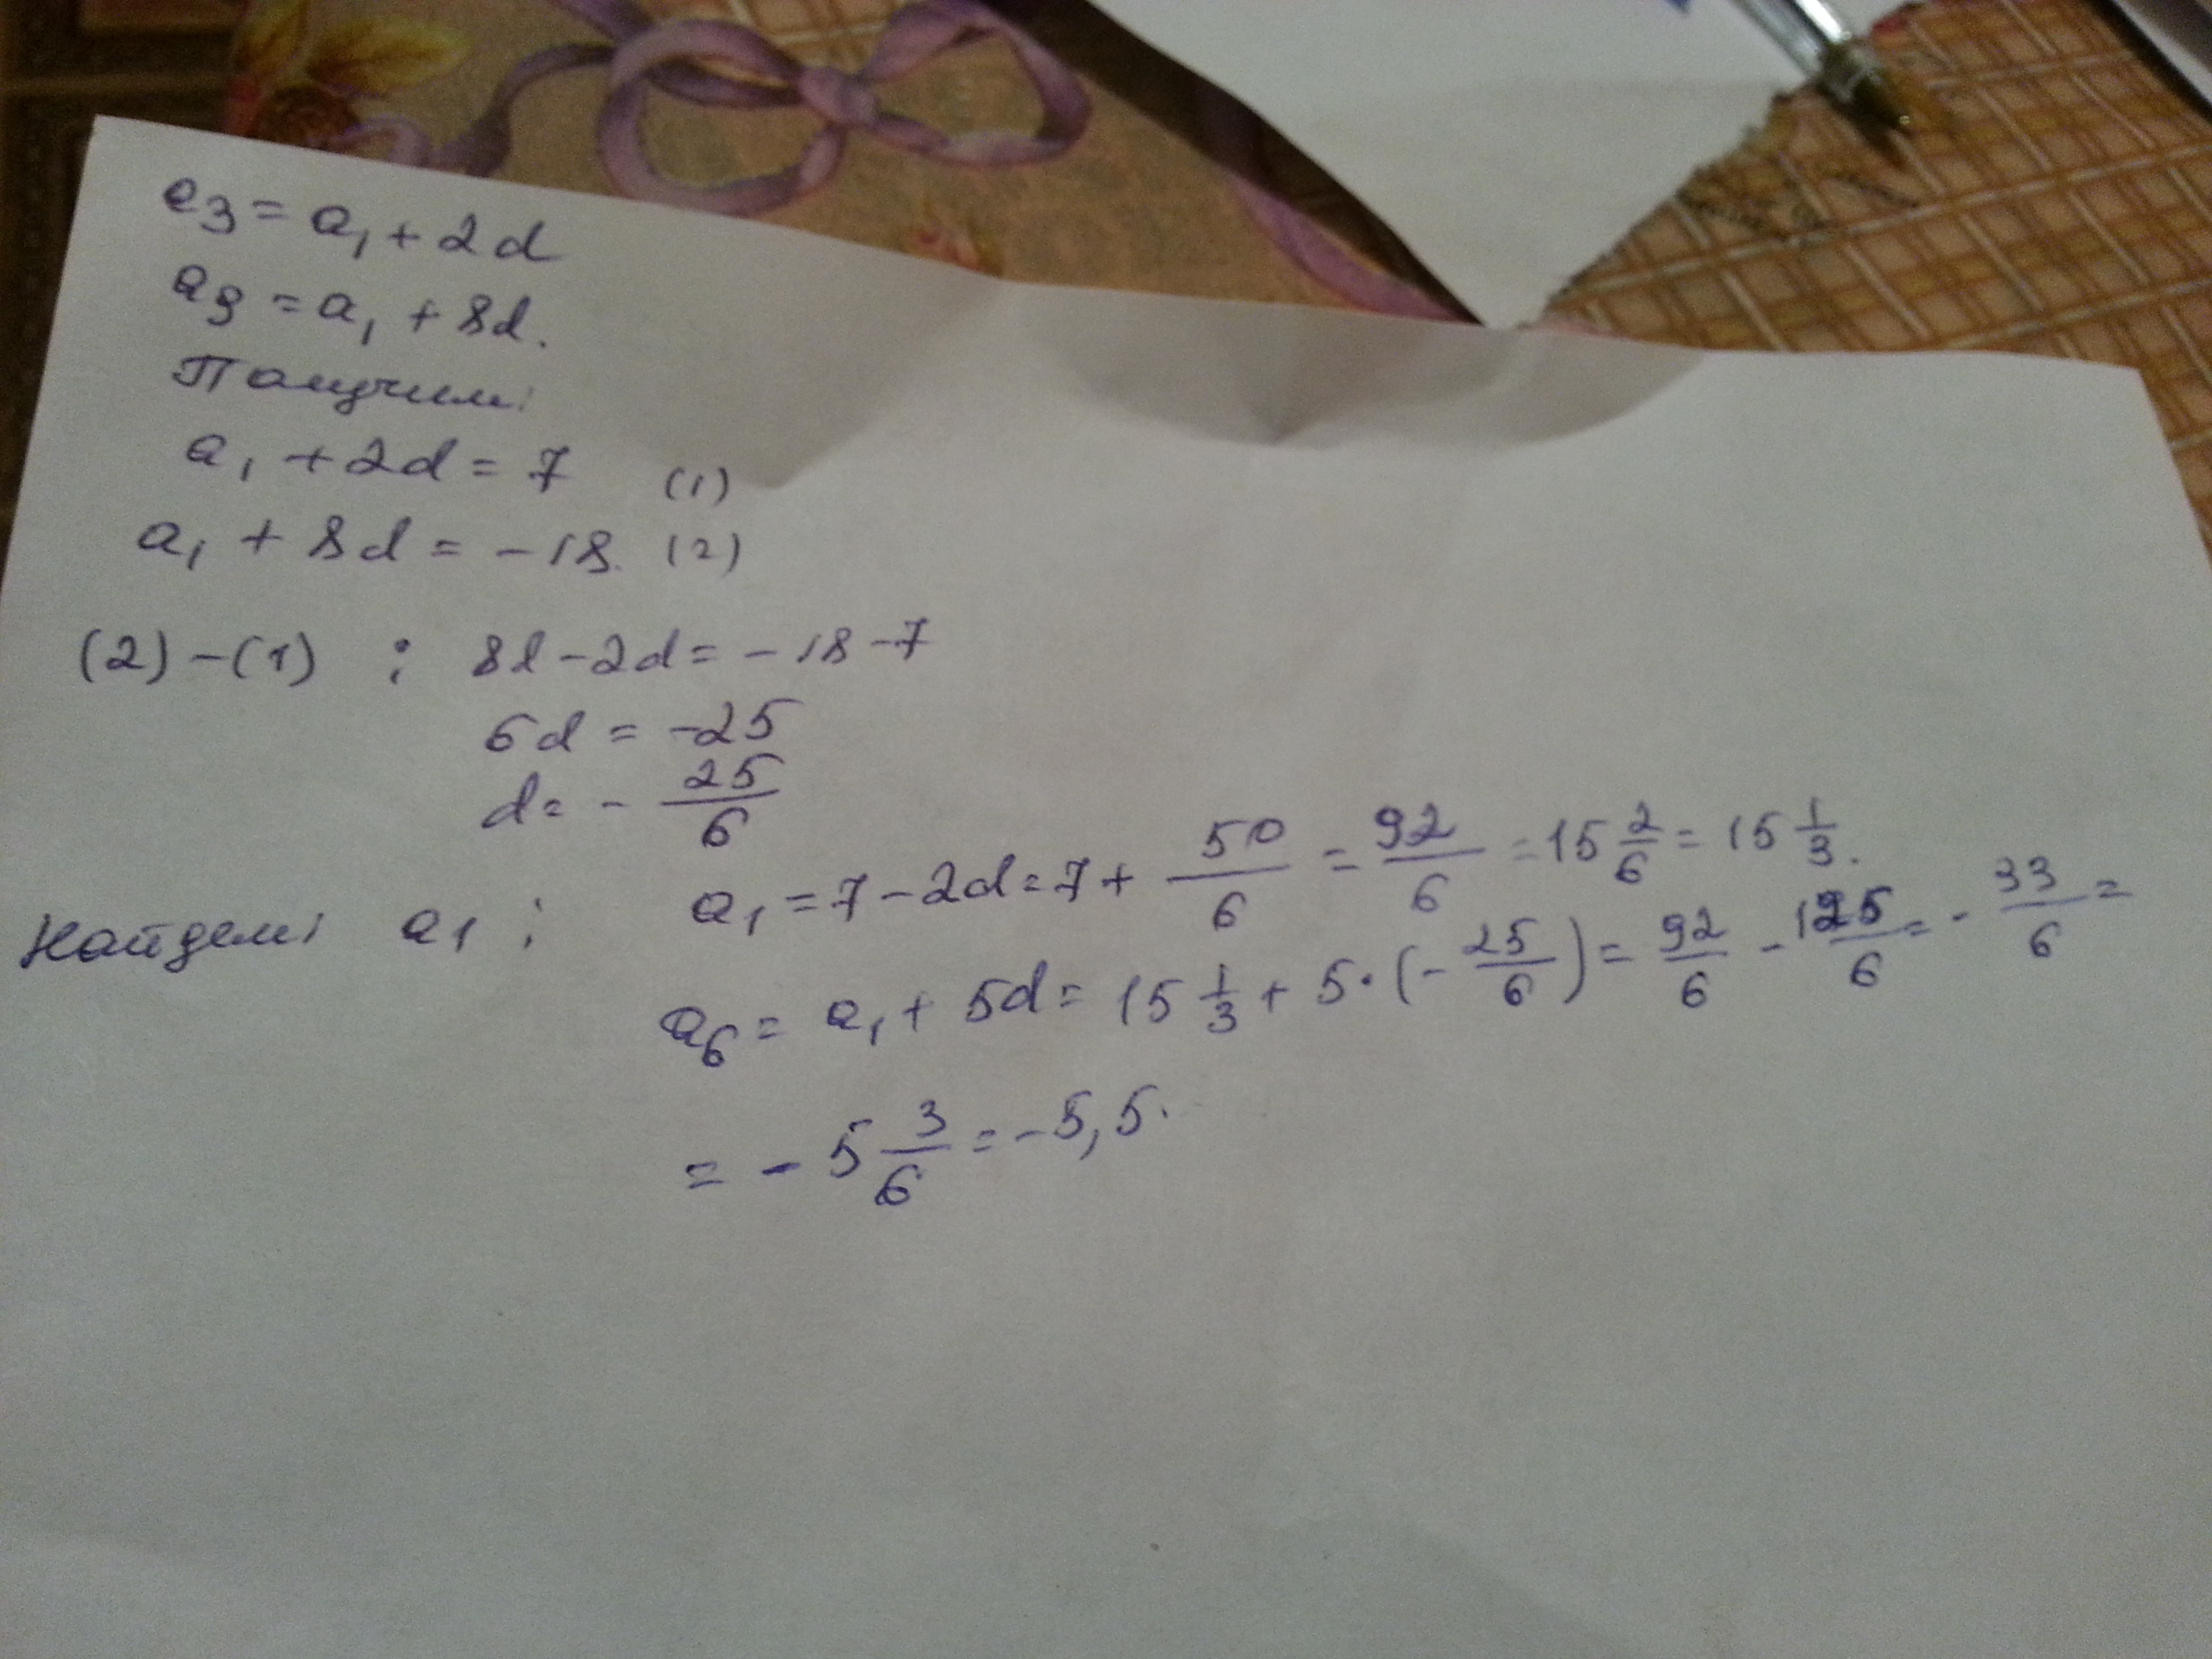 a₃ = a₁ + 2d
a₉ = a₁ + 8d.
Получим:
a₁ + 2d = 7 (1)
a₁ + 8d = -18. (2)
(2) - (1) : 8d - 2d = -18 - 7
6d = -25
d = - 25/6
Найдем: a₁ : a₁ = 7 - 2d = 7 + 50/6 = 92/6 = 15 2/6 = 15 1/3.
a₆ = a₁ + 5d = 15 1/3 + 5 · (- 25/6) = 92/6 - 125/6 = - 33/6 =
= - 5 3/6 = -5,5.